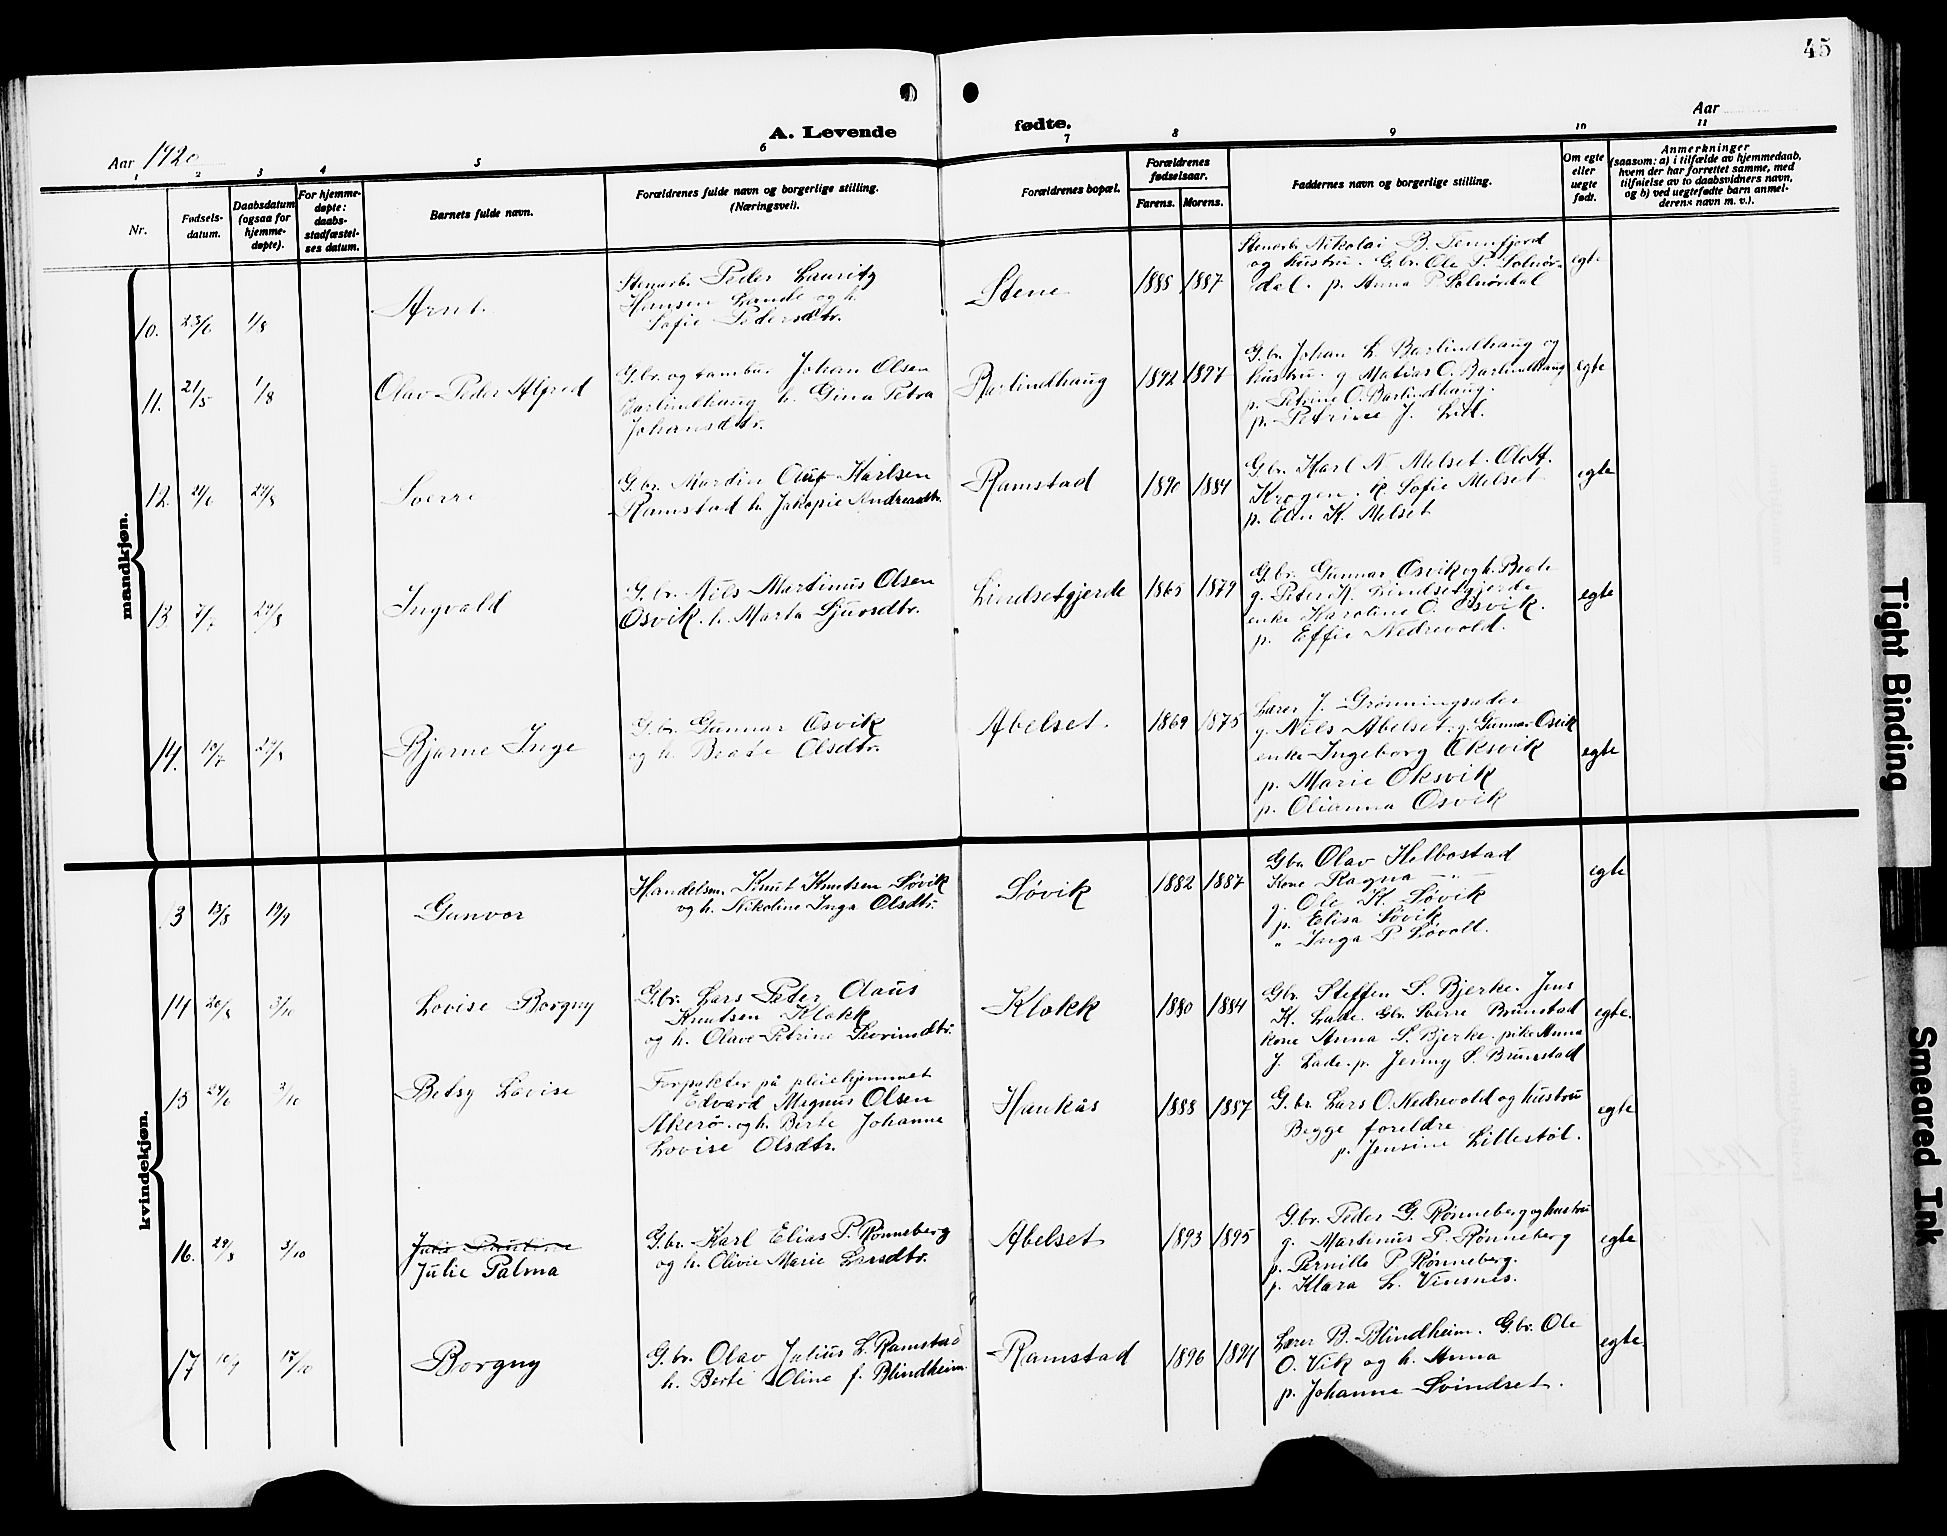 45
A. Levende fødte.
Aar 1920
Aar
1 2 3 4 5 6 7 8 9 10 11
Nr.
Fødsels-
datum.
Daabsdatum
(ogsaa for
hjemme-
døpte).
For hjemme-
døpte:
daabs-
stadfæstel-
ses datum.
Barnets fulde navn.
Forældrenes fulde navn og borgerlige stilling.
(Næringsvei).
Forældrenes bopæl.
Forældrenes
fødselsaar.
Farens. Morens.
Faddernes navn og borgerlige stilling.
Om egte
eller
uegte
født.
Anmerkninger
(saasom: a) i tilfælde av hjemmedaab,
hvem der har forrettet samme, med
tilføielse av to daabsvidners navn,
og b) ved uegtefødte barn anmel-
derens navn m. v.).
mandkjøn.
10. 23/6 1/8
Arnt
Stenarb. Peder Lauritz
Hansen Lande og h.
Sofie Pedersdtr.
Stene
1885 1887
Stenarb. Nikolai B. Tennfjord
og hustru. G.br. Ole P. Solnør-
dal. p. Anna P. Solnørdal
egte
11. 21/5 1/8
Olav Peder Alfred
G.br. og tambur Johan Olsen
Barlindhaug h. Gina Petra
Johansdtr.
Barlindhaug
1892 1897
G.br. Johan L. Barlindhaug og
hustru. g Matias O. Barlindhaug
p. Petrine O. Barlindhaug.
p. Petrine J. Lid.
egte
12. 24/6 29/8
Sverre
G.br. Martin Oluf Karlsen
Ramstad h. Jakopie Andreasdtr.
Ramstad
1890 1884
G.br. Karl N. Melset. Ole A.
Krogen. k. Sofie Melset
p. Elen K. Melset
egte
13. 7/7 29/8
Ingvald
G.br. Nils Martinus Olsen
Osvik. h. Marta Sjursdtr.
Lindsetgjerde
1865 1879
G.br. Gunnar Osvik og h. Beate
g. Peter K. Lindsetgjerde
enke Karoline O. Osvik.
p. Effie Nedrevold.
egte
14. 19/7 29/8
Bjarne Inge
G.br. Gunnar Osvik
og h. Beate Olsdtr.
Abelset.
1869 1875
Lærer J. Grønningsæter
g. Nils Abelset. g. Gunnar Osvik
enke Ingeborg Oksvik
p. Marie Oksvik
p. Olianna Osvik
egte
kvindekjøn.
13 13/8 19/9
Gunvor
Handelsm. Knut Knutsen Søvik
og h. Nikoline Inga Olsdtr.
Søvik
1882 1887
Gbr. Olav Helbostad
Kone Ragna —"—
g. Ole K. Søvik
p. Elisa Søvik
" Inga P. Løvoll.
egte
14 20/8 3/10
Lovise Borgny
G.br. Lars Peder Olaus
Knutsen Klokk
og h. Olave Petrine Severinsdtr.
Klokk
1880 1884
Gbr. Steffen S. Bjerke. Jens
K. Lade. Gbr. Sverre Brunstad
kone Anna S. Bjerke. pike Anna
J. Lade. p. Jenny S. Brunstad
egte.
15 24/6 3/10
Betsy Lovise
Forpakter på pleiehjemmet
Edvard Magnus Olsen
Akerø. og h. Berte Johanne
Lovise Olsdtr.
Haukås
1888 1887
G.br. Lars O. Nedrevold og hustru
Begge foreldre
p. Jensine Lillestøl.
egte
16. 29/8 3/10
Julie Pauline
Julie Palma
G.br. Karl Elias P. Rønneberg
og h. Olivie Marie Larsdtr.
Abelset
1893 1895
G.br. Peder G. Rønneberg og hustru
g. Martinus P. Rønneberg
p. Pernille P. Rønneberg.
p. Klara L. Vinsnes.
egte
17 10/9 17/10
Borgny
G.br. Olav Julius L. Ramstad
h. Berte Oline f. Blindheim.
Ramstad
1896 1894
Lærer B. Blindheim. G.br. Ole
O. Vik og h. Anna
p. Johanne Svindset.
egte.
Tight Binding
Smeared Ink